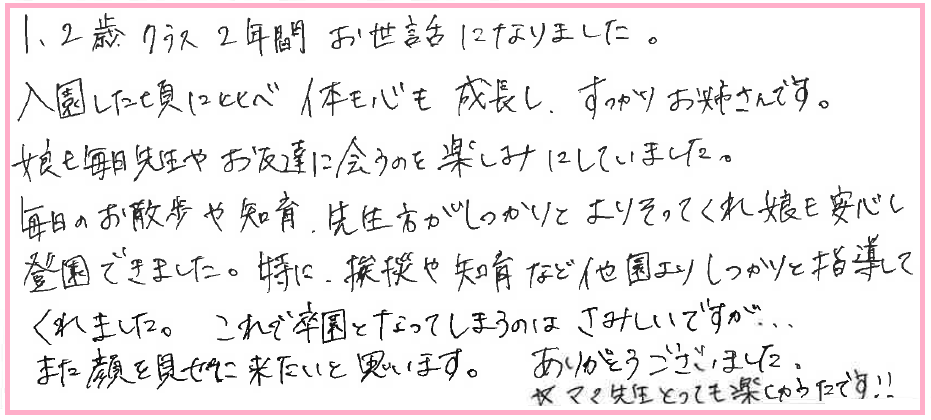 1、2歳クラス2年間お世話になりました。
入園した頃にくらべ体も心も成長し、すっかりお姉さんです。
娘も毎日先生やお友達に会うのを楽しみにしていました。
毎日のお散歩や知育、先生方がしっかりとよりそってくれ娘も安心し
登園できました。特に、挨拶や知育など他園よりしっかりと指導して
くれました。これで卒園となってしまうのはさみしいですが…
また顔を見せに来たいと思います。ありがとうございました。
ママ先生とっても楽しかったです!!